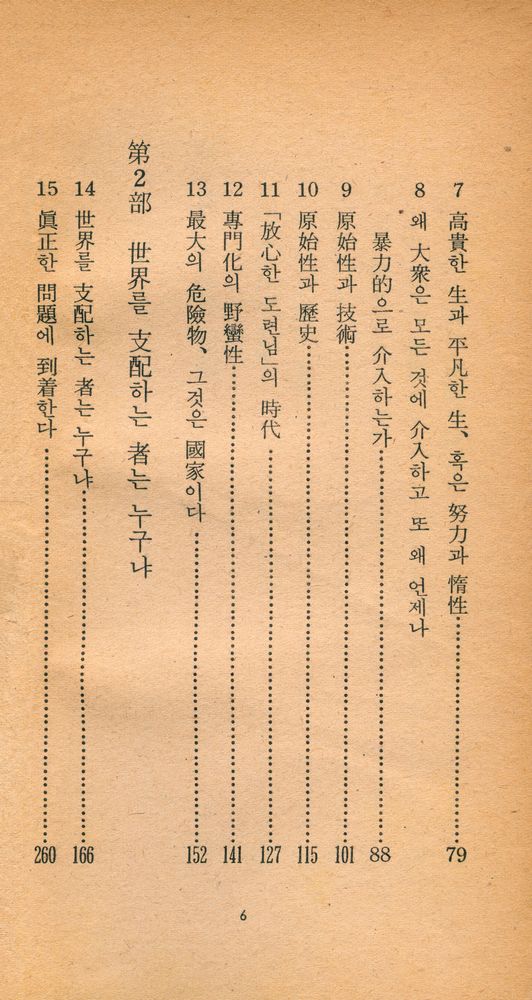 7 高貴한 生과 平凡한 生、혹은 努力과 惰性 79
8 왜 大衆은 모든 것에 介入하고 또 왜 언제나
暴力的으로 介入하는가 88
9 原始性과 技術 101
10 原始性과 歷史 115
11 「放心한 도련님」의 時代 127
12 專門化의 野蠻性 141
13 最大의 危險物、그것은 國家이다 152
第2部 世界를 支配하는 者는 누구냐
14 世界를 支配하는 者는 누구냐 166
15 眞正한 問題에 到着한다 260
6